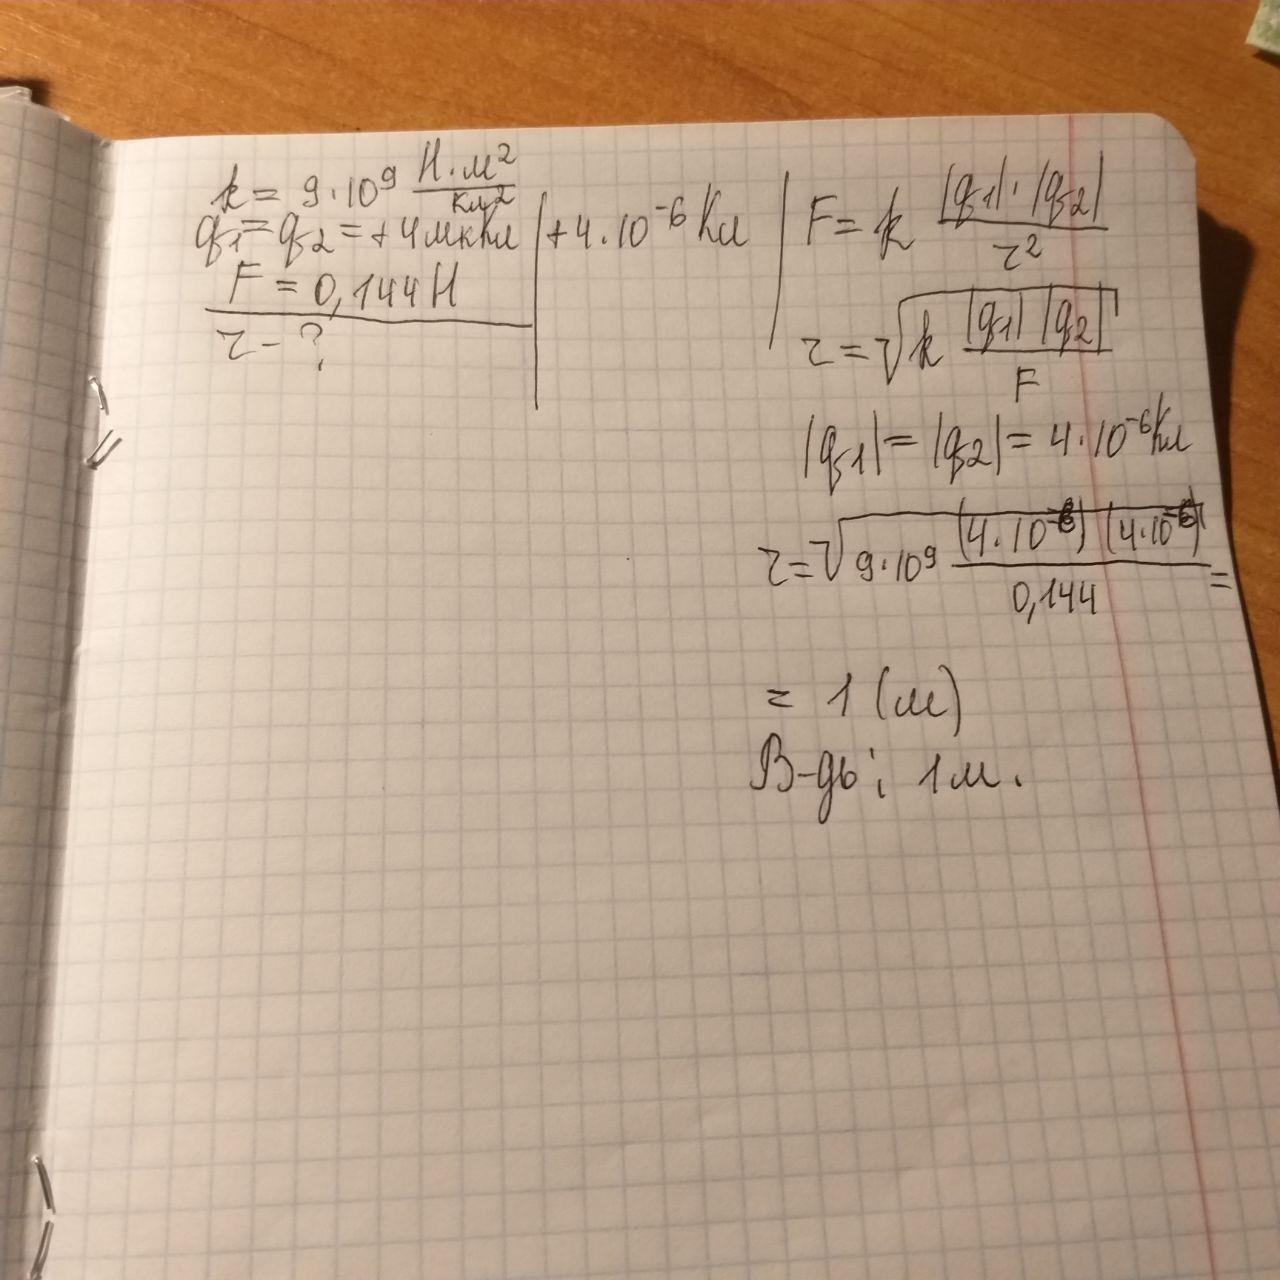 k = 9·10⁹ Н·м²/Кл²
q₁ = q₂ = +4мкКл | +4·10⁻⁶ Кл
F = 0,144 Н
r - ?
F = k |q₁|·|q₂| / r²
r = √(k |q₁| |q₂| / F)
|q₁| = |q₂| = 4·10⁻⁶ Кл
r = √(9·10⁹ (4·10⁻⁶) (4·10⁻⁶) / 0,144) =
= 1 (м)
В-дь: 1 м.